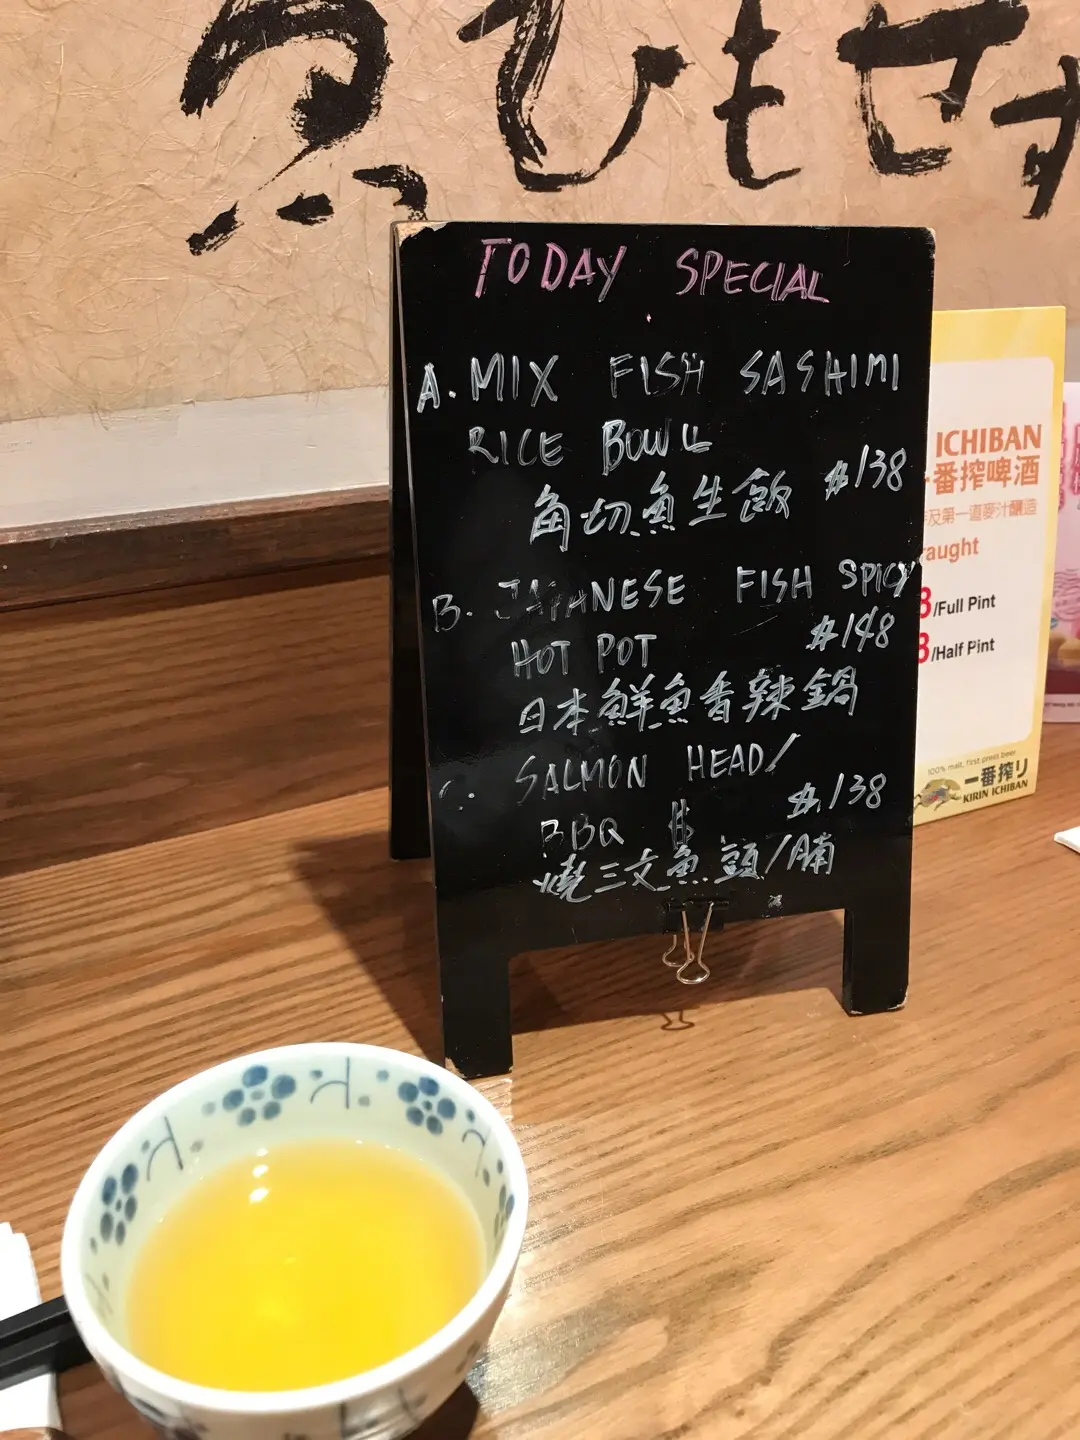 魚ひもせす
TODAY SPECIAL
A. MIX FISH SASHIMI
RICE BOWLL
角切魚生飯 $138
B. JAPANESE FISH SPICY
HOT POT $148
日本鮮魚香辣鍋
C. SALMON HEAD/
BBQ $ $.138
燒三文魚頭/腩
ICHIBAN
一番搾啤酒
及第一道麥汁釀造
raught
8/Full Pint
8/Half Pint
100% malt, first press beer
一番搾り
KIRIN ICHIBAN